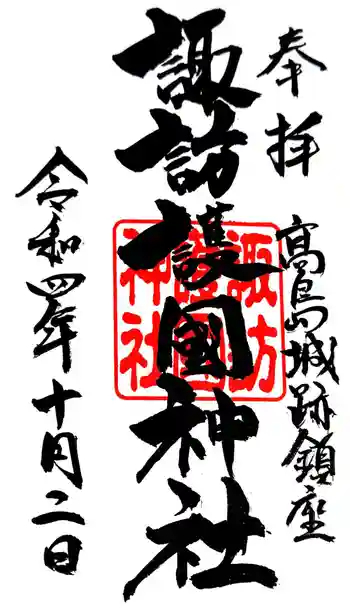 奉拝
高島城跡鎮座
諏訪護國神社
諏訪
護國
神社
令和四年十月二日